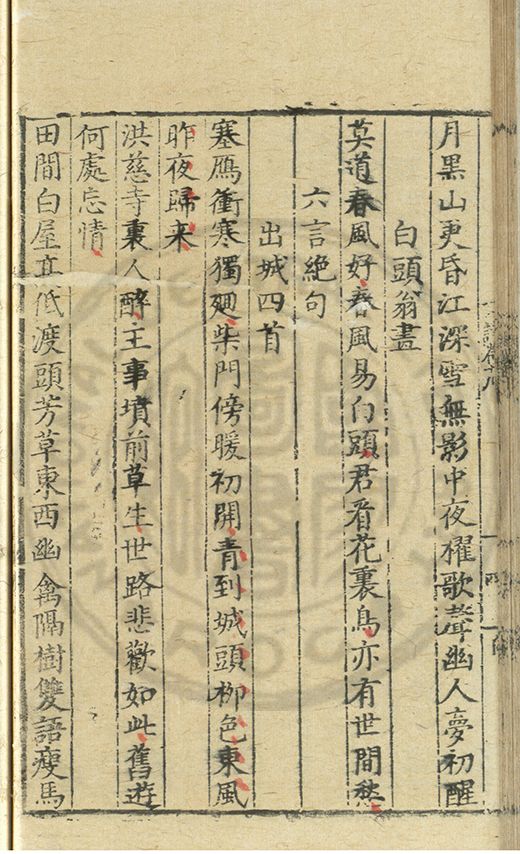 月黑山更昏江深雪無影中夜櫂歌聲幽人夢初醒
白頭翁畫
莫道春風好春風易白頭君看花裏鳥亦有世間愁
六言絕句
出城四首
塞鴈衝寒獨廻柴門傍暖初開青到城頭柳色東風
昨夜歸来
洪慈寺裏人醉主事墳前草生世路悲歡如此舊遊
何處忘情
田間白屋高低渡頭芳草東西幽禽隔樹雙語瘦馬